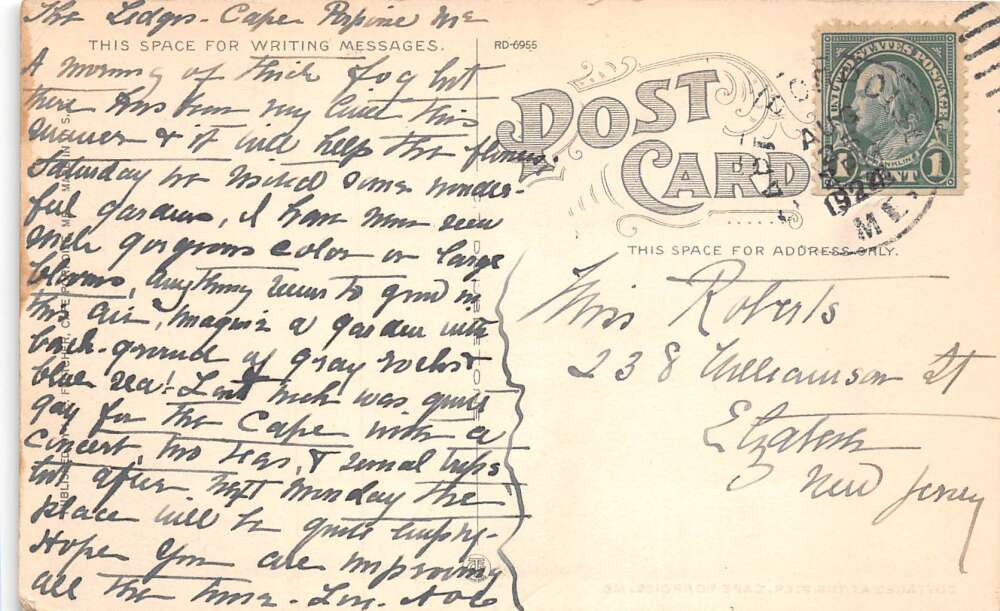 The Ledges - Cape Porpoise Me
THIS SPACE FOR WRITING MESSAGES.
RD-6955
A morning of thick fog but
there has been very little this
summer & it will help the flowers.
Saturday we visited some wonder-
ful gardens, I have never seen
such gorgeous color or large
blooms, anything seems to grow in
this air, imagine a garden with
back-ground of gray rocks &
blue sea! Last week was quite
gay for the Cape with a
concert, two teas, & several trips
but after next Monday the
place will be quite empty-
Hope you are improving
all the time - Lov.
POST CARD
THIS SPACE FOR ADDRESS ONLY.
UNITED STATES POSTAGE
FRANKLIN
1 CENT 1
AUG
1924
ME.
Miss Roberts
238 Williamson St
Elizabeth
New Jersey